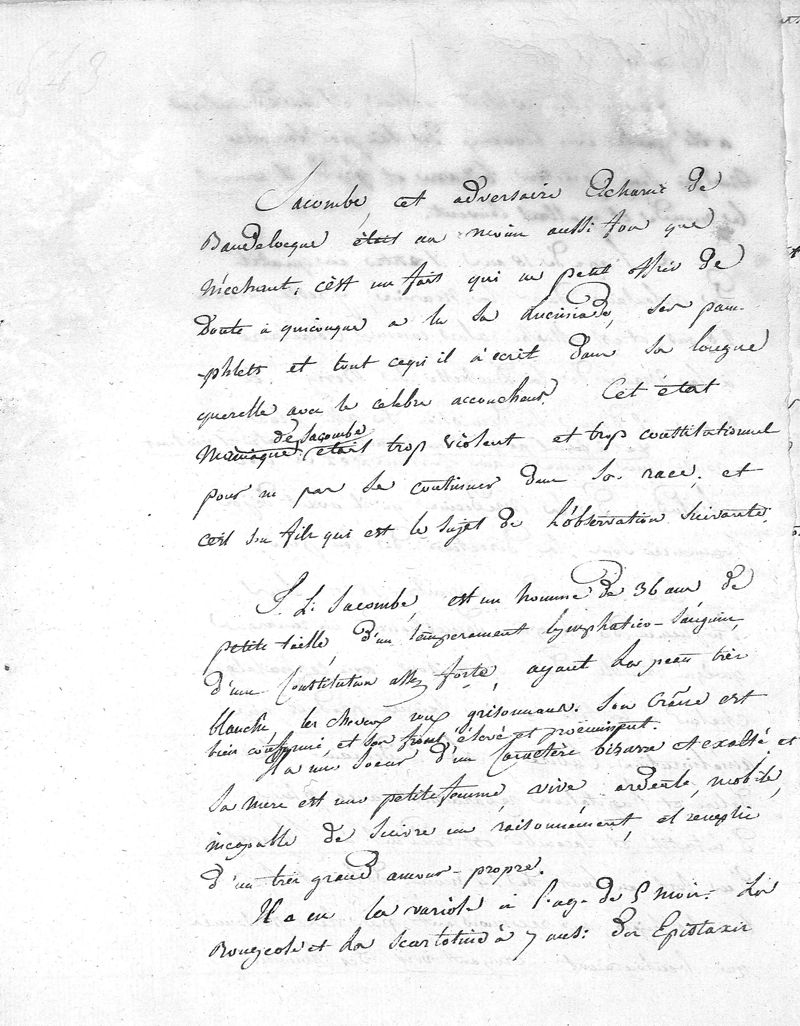 843
Sacombe, cet adversaire acharné de
Baudelocque était au moins aussi fou que
méchant; c'est un fait qui ne peut offrir de
doute à quiconque a lu sa Luciniade, ses pam-
-phlets et tout cequ'il a écrit dans sa longue
querelle avec le celebre accoucheur. Cet état
maniaque de Sacombe était trop violent et trop constitutionnel
pour ne pas se continuer dans sa race; et
c'est son fils qui est le sujet de l'observation suivante.
J. L. Sacombe, est un homme de 36 ans de
petite taille, d'un temperament lymphatico-sanguin,
d'une Constitution assez forte, ayant la peau très
blanche, les cheveux roux grisonnans. Son Crâne est
bien conformé, et son front élevé et proéminent.
Il a une soeur d'un Caractère bizarre et exalté et
sa mere est une petite femme, vive ardente, mobile,
incapable de suivre un raisonnement, et remplie
d'un très grand amour-propre.
Il a eu la variole à l'age de 5 mois; La
Rougeole et la Scarlatine à 7 ans; des Epistaxis